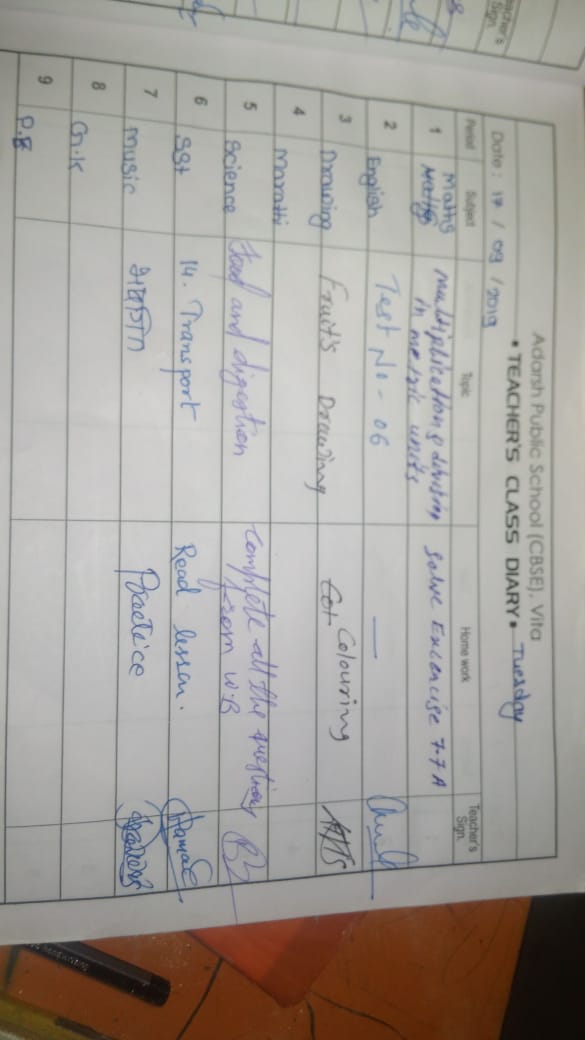 Teacher's
Sign.
Adarsh Public School (CBSE), Vita
• TEACHER'S CLASS DIARY •
Date : 17 / 09 / 2019
Tuesday
Period Subject Topic Home work Teacher's Sign.
1 Maths multiplication & division in metric units Solve Excercise 7.7 A
2 English Test No - 06 —
3 Drawing Fruit's Drawing Colouring
4 Marathi
5 Science Food and digestion Complete all the questions from W.B
6 SSt 14. Transport Read lesson.
7 music Practice
8 G.K
9 P.E